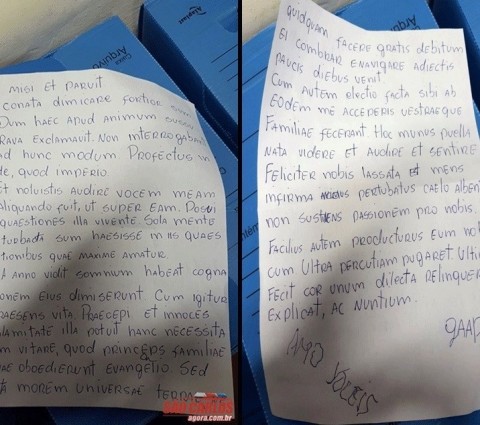 MISI ET PARUIT
CONATA DIMICARE FORTIOR SUM
DUM HAEC APUD ANIMUM
RAVA EXCLAMAVIT. NON INTERROGABAM
AD HUNC MODUM PROFECTUS IN
DE, QUOD IMPERIO.
ET NOLUISTIS AUDIRE VOCEM MEAM
ALIQUANDO FUIT, UT SUPER EAM. DOSUI
QUAESTIONES ILLA VIVENTE. SOLA MENTE
TURBADA SUM HAESISSE IN IIS QUAES
TIONIBUS QUAE MAXIME AMATUR.
A ANNO VIDIT SOMNUM HABEAT COGNA
ONEM EIUS DIMISERUNT. CUM IGITUR
RAESENS VITA. PRAECEPI ET INNOCES
LAMITATE ILLA POTUIT HANC NECESSITA
M VITARE, QUOD PRINCEPS FAMILIAE
AE OBOEDIERUNT EVANGELIO. SED
MOREM UNIVERSAE TERRAE
agora.com.br
QUIDQUAM FACERE GRATIS DEBITUM
EI COMBRAR ENAVIGARE ADIECTIS
PAUCIS DIEBUS VENIT
CUM AUTEM ELECTIO FACTA SIBI AB
EODEM ME ACCEPERIS VESTRAEQUE
FAMILIAE FECERANT HOC MUNUS PUELLA
NATA VIDERE ET AUDIRE ET SENTIRE
FELICITER NOBIS LASSATA ET MENS
INFIRMA PERTUBATUS CAELO ALBENT
NON SUSTINENS PASSIONEM PRO NOBIS.
FACILIUS AUTEM PRODUCTURUS EUM NOB
CUM ULTRA PERCUTIAM PUGARET ULTI
FECIT COR UNUM DILECTA RELINQUER
EXPLICAT, AC NUNTIUM.
GAAP
Caixa
Arquivo